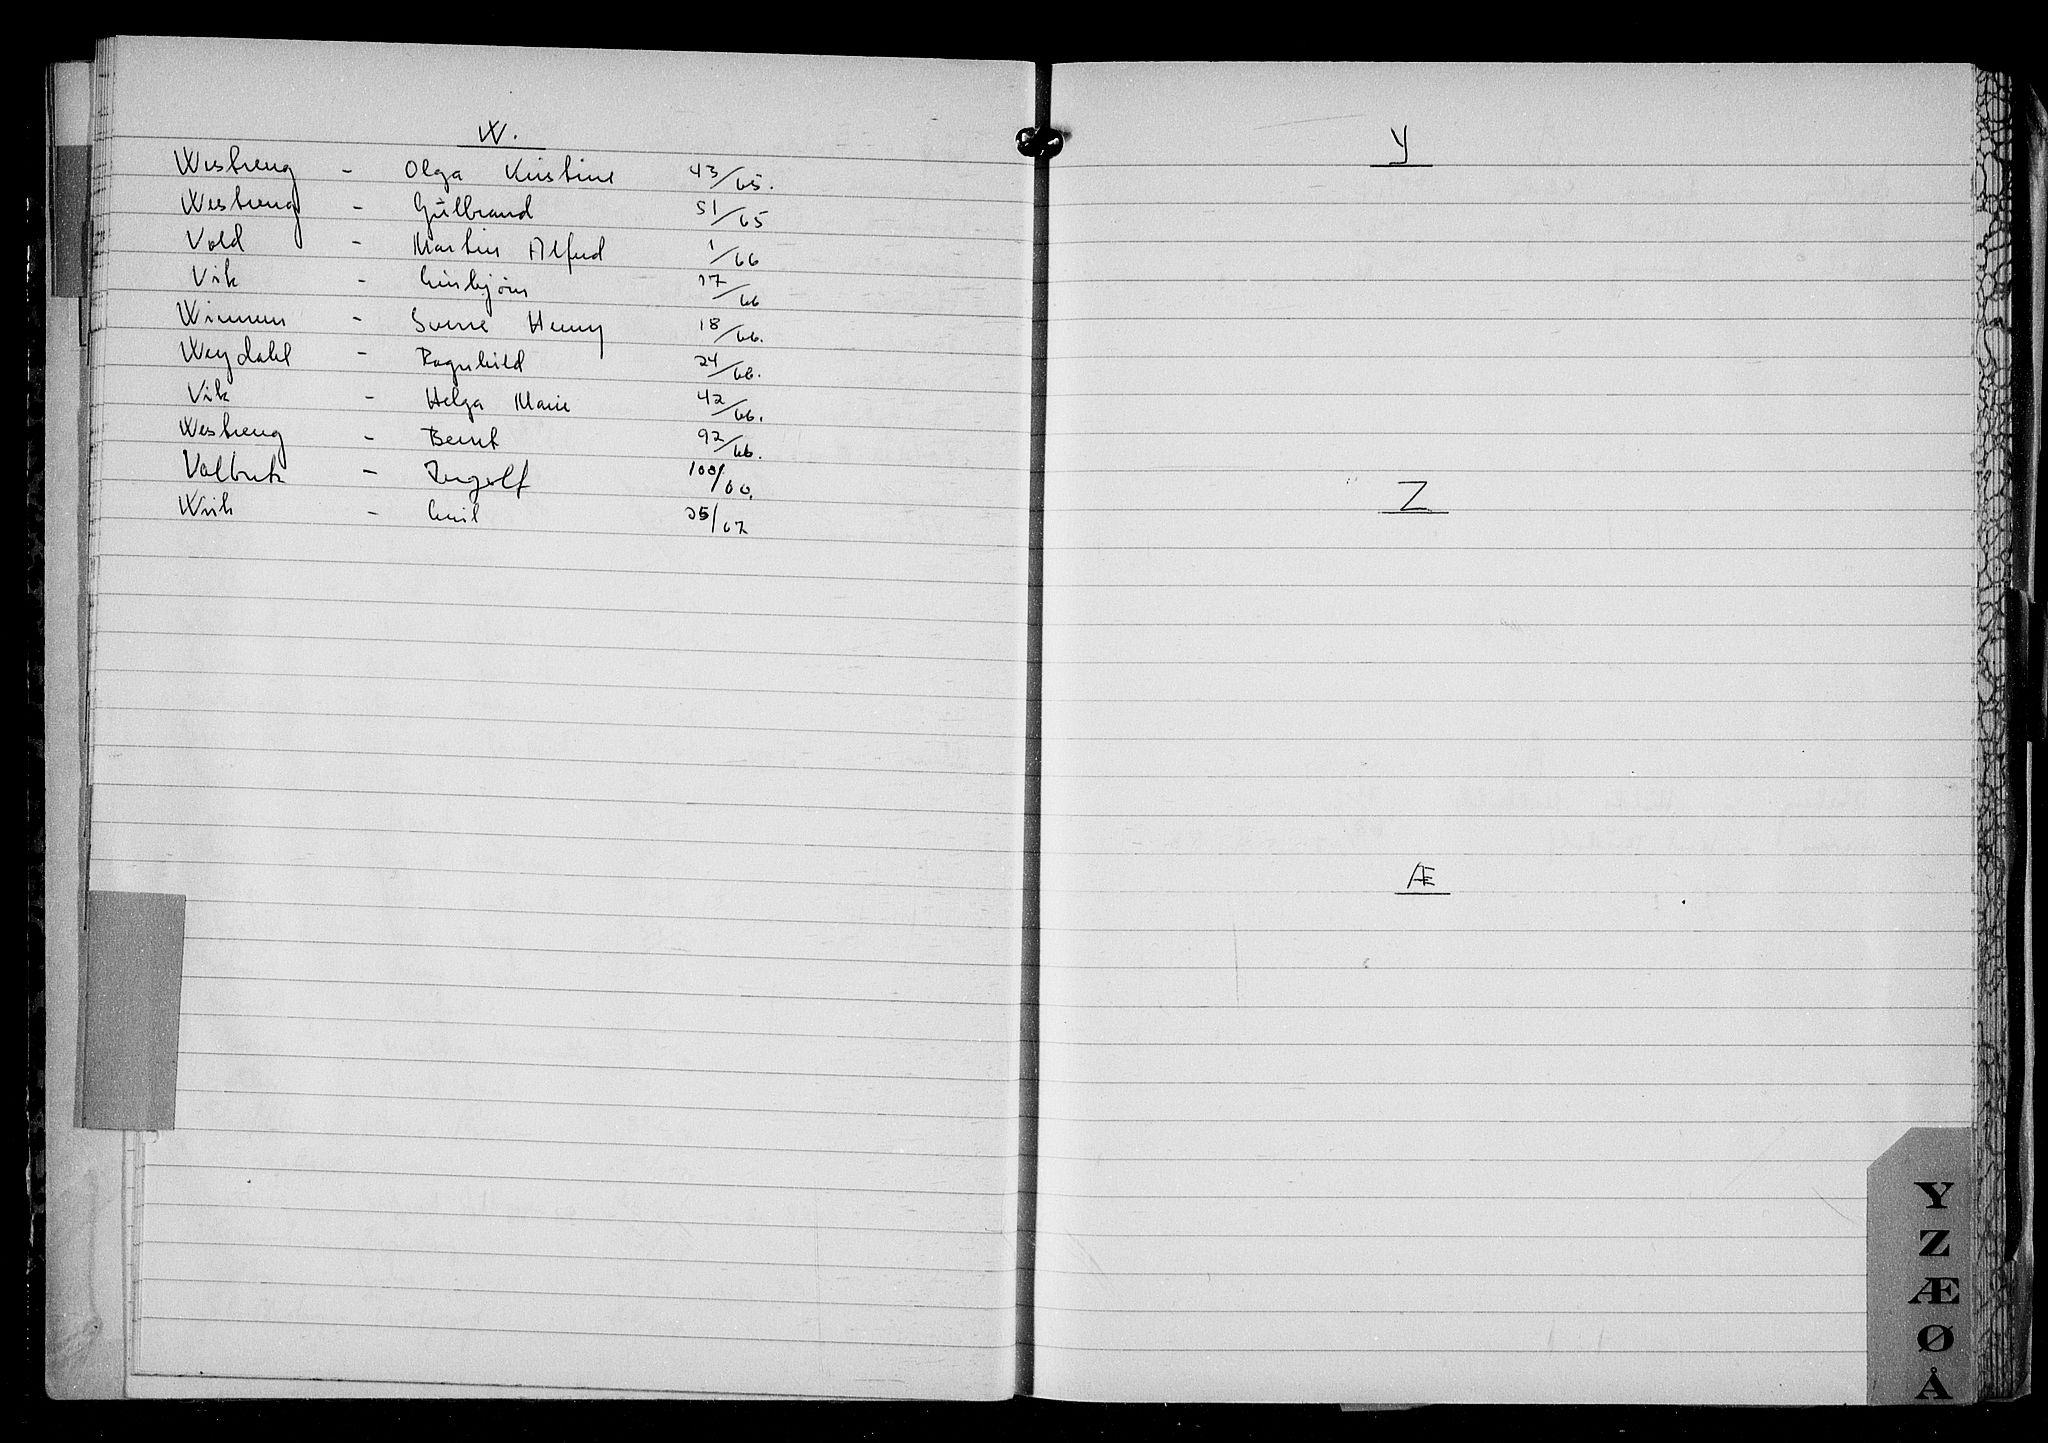 W.
Westreng - Olga Kristine 43/65.
Westreng - Gulbrand 51/65
Vold - Martin Alfred 1/66
Vik - Einbjörn 17/66
Winnem - Sverre Henry 18/66.
Weydahl - Ragnhild 24/66.
Vik - Helga Marie 42/66.
Westreng - Bernt 92/66.
Valbrek - Ingolf 100/66.
Wiik - Emil 25/67
Y
Z
Æ
Y
Z
Æ
Ø
Å